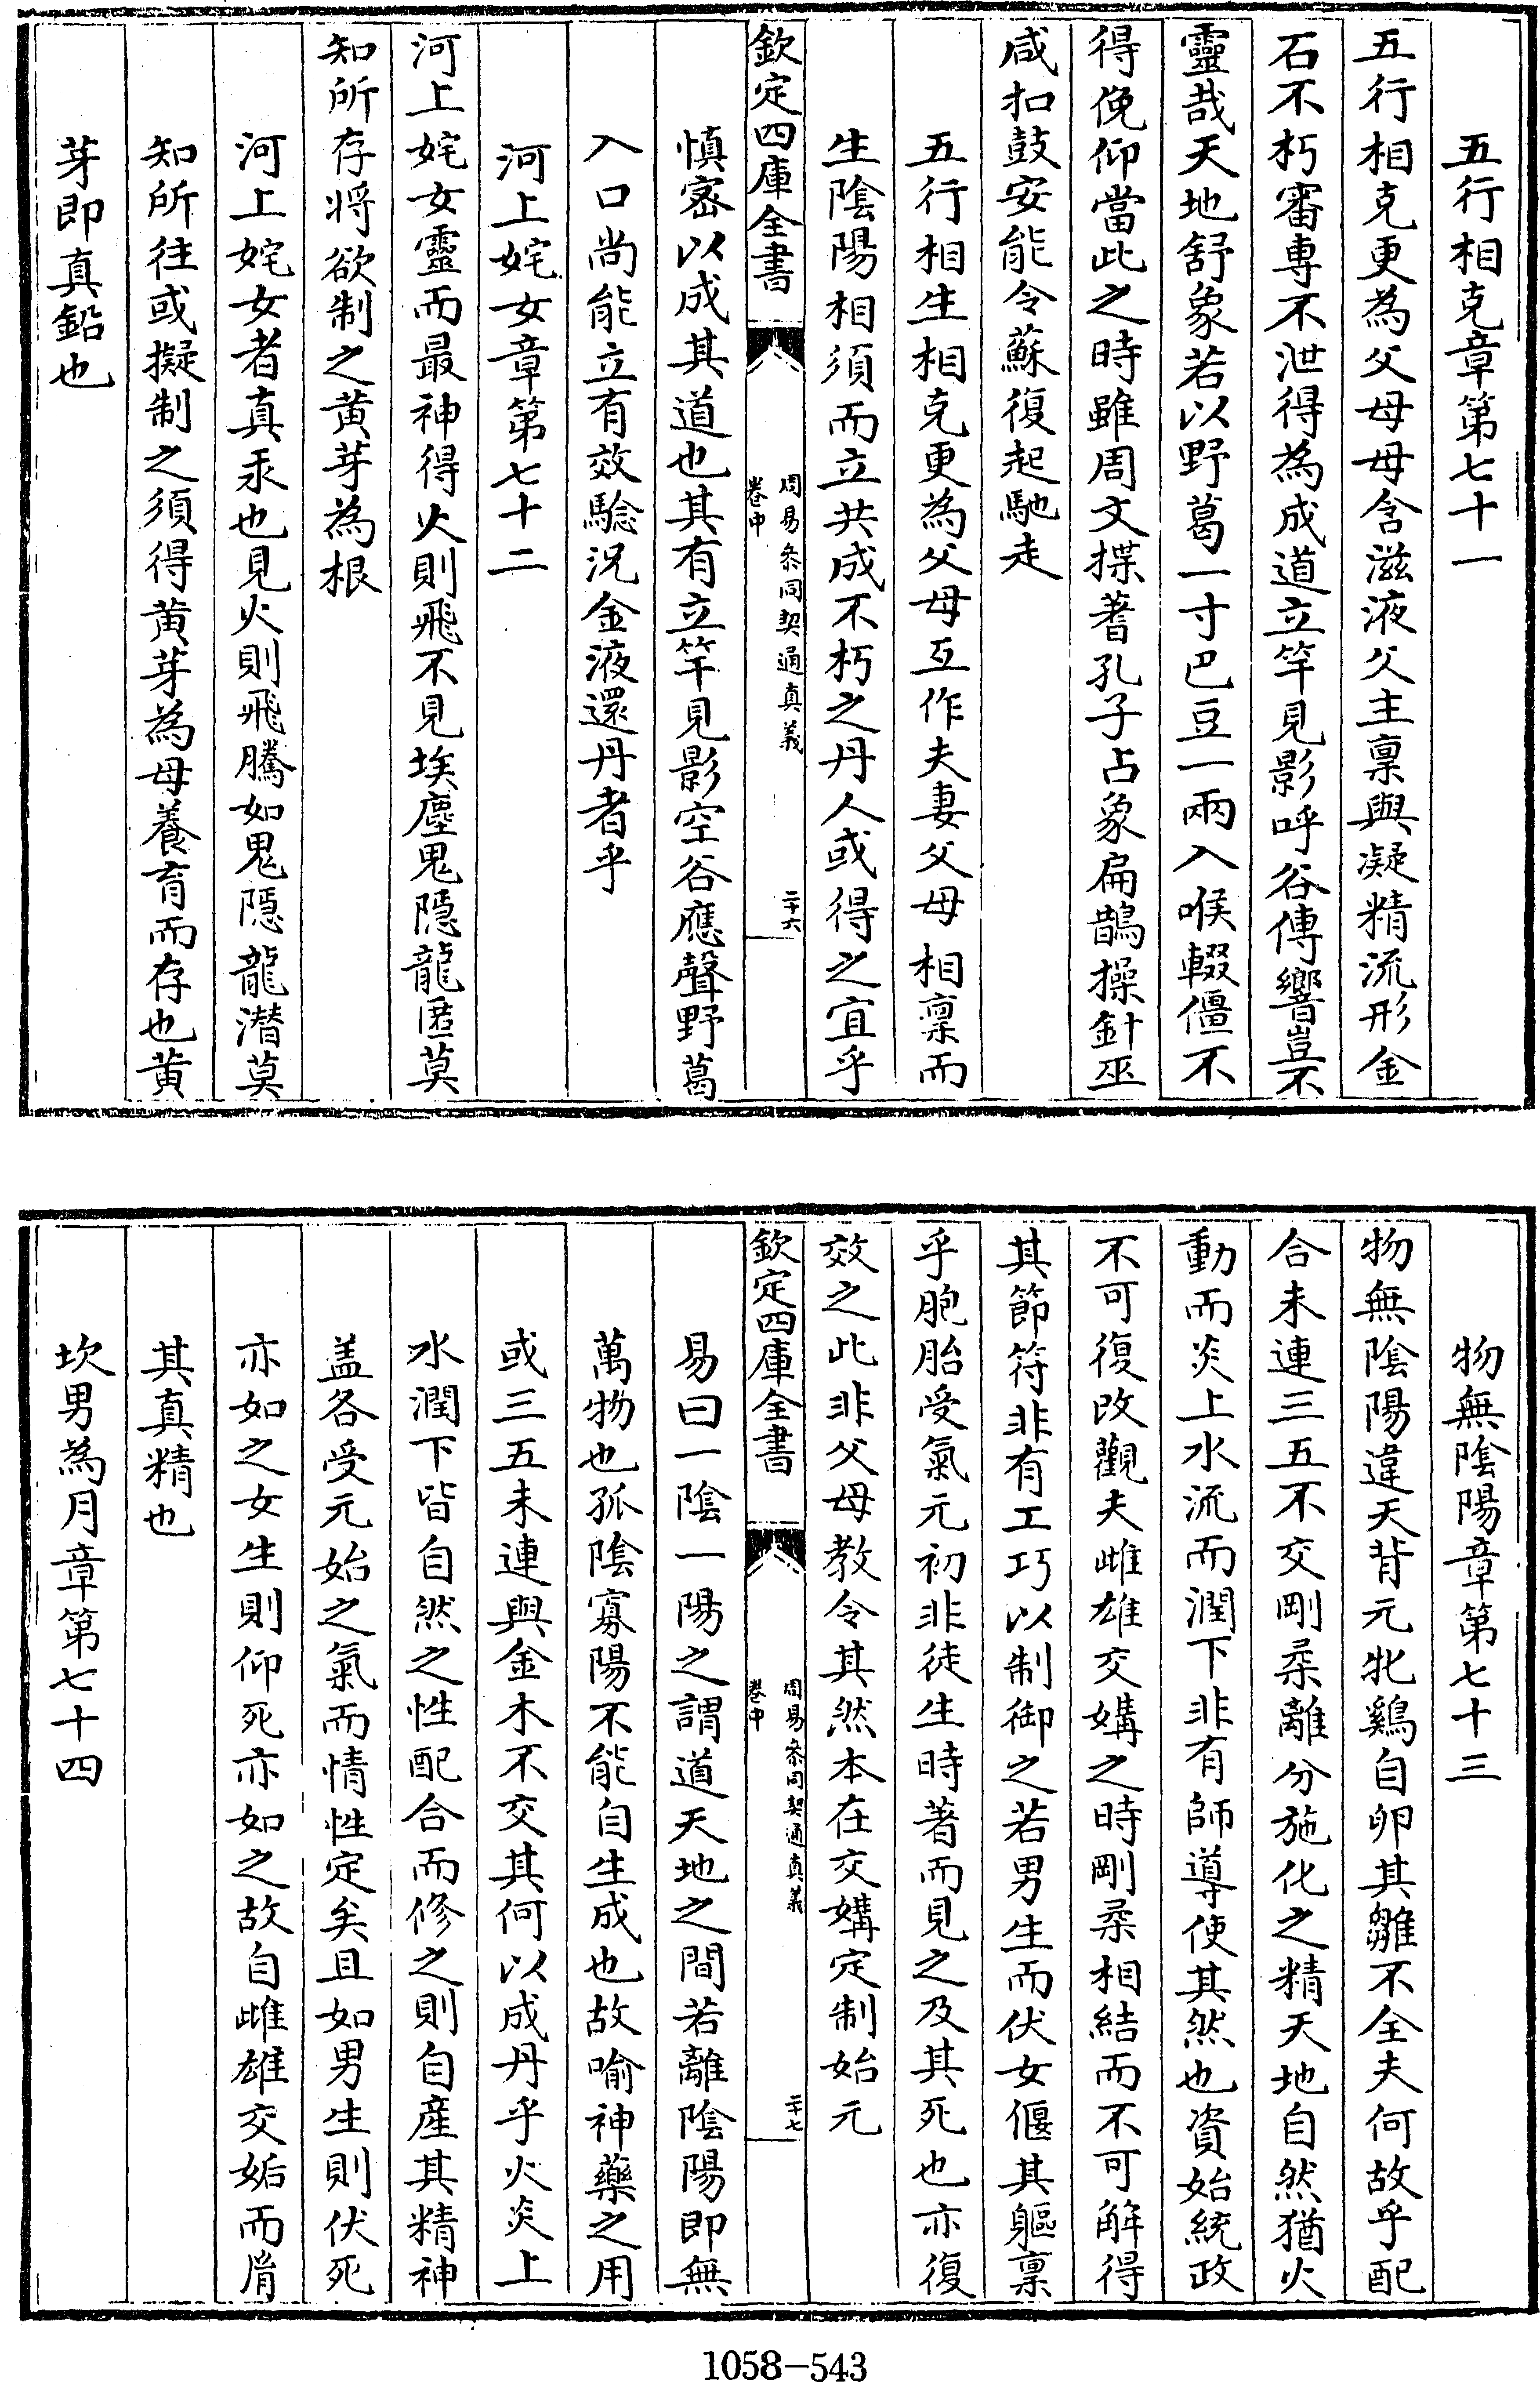 五行相克章第七十一
五行相克更為父母母含滋液父主稟與凝精流形金
石不朽審専不泄得為成道立竿見影呼谷傳響豈不
靈哉天地舒象若以野葛一寸巴豆一兩入喉輟僵不
得俛仰當此之時雖周文揲蓍孔子占象扁鵲操針巫
咸扣鼓安能令蘇復起馳走
五行相生相克更為父母互作夫妻父母相稟而
生陰陽相須而立共成不朽之丹人或得之宜乎
欽定四庫全書
周易叅同契通真義
卷中
二十六
慎宻以成其道也其有立竿見影空谷應聲野葛
入口尚能立有效驗况金液還丹者乎
河上姹女章第七十二
河上姹女靈而最神得火則飛不見埃塵鬼隱龍匿莫
知所存将欲制之黄芽為根
河上姹女者真汞也見火則飛騰如鬼隱龍潛莫
知所往或擬制之須得黄芽為母養育而存也黄
芽即真鉛也
物無陰陽章第七十三
物無陰陽違天背元牝鷄自卵其雛不全夫何故乎配
合未連三五不交剛柔離分施化之精天地自然猶火
動而炎上水流而潤下非有師導使其然也資始統政
不可復改觀夫雌雄交媾之時剛柔相結而不可解得
其節符非有工巧以制御之若男生而伏女偃其軀稟
乎胞胎受氣元初非徒生時著而見之及其死也亦復
效之此非父母教令其然本在交媾定制始元
欽定四庫全書
周易叅同契通真義
卷中
二十七
易曰一陰一陽之謂道天地之間若離陰陽即無
萬物也孤陰寡陽不能自生成也故喻神藥之用
或三五未連與金木不交其何以成丹乎火炎上
水潤下皆自然之性配合而修之則自産其精神
盖各受元始之氣而情性定矣且如男生則伏死
亦如之女生則仰死亦如之故自雌雄交姤而肎
其真精也
坎男為月章第七十四
1058-543